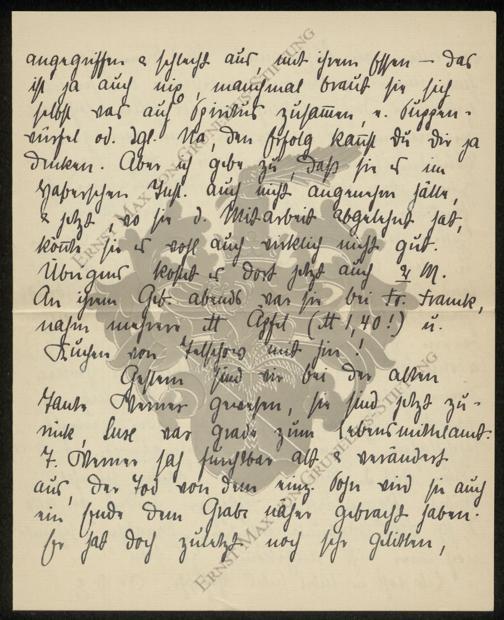 angegriffen & schlecht aus, mit ihrem Essen – das
ist ja auch nix, manchmal braut sie sich
selbst was auf Spiritus zusammen, v. Suppen-
würfel od. dgl. Na, den Erfolg kannst Du Dir ja
denken. Aber ich gebe zu, daß sie es im
Haberschen Inst. auch nicht angenehm hätte,
& jetzt, wo sie d. Mitarbeit abgelehnt hat,
könnte sie es wohl auch wirklich nicht gut.
Übrigens kostet es dort jetzt auch M.
An ihrem Geb. abends war sie bei Fr. Franck,
nahm mehrere ℔ Äpfel (℔ 1,40!) u.
Kuchen von Telschow mit hin!
Gestern sind wir bei der alten
Tante Werner gewesen, sie sind jetzt zu-
rück, Suse war grade zum Lebensmittelamt.
T. Werner sah furchtbar alt & verändert
aus, der Tod von dem einz. Sohn wird sie auch
ein Ende dem Grabe näher gebracht haben.
Er hat doch zuletzt noch sehr gelitten,
ERNST MAX VON GRUNELIUS-STIFTUNG
ERNST MAX VON GRUNELIUS-STIFTUNG